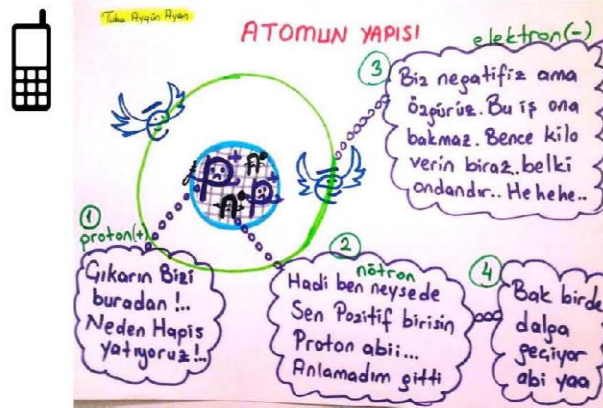 Tuba Aygün Ayan
ATOMUN YAPISI
elektron(-)
3
Biz negatifiz ama
özgürüz. Bu iş ona
bakmaz. Bence kilo
verin biraz.. belki
ondandır.. Hehehe..
P+
n°
n°
P+
1
proton(+)
Çıkarın Bizi
buradan !..
Neden Hapis
yatıyoruz!..
2
nötron
Hadi ben neysede
Sen Pozitif birisin
Proton abii...
Anlamadım gitti
4
Bak birde
dalga
geçiyor
abi yaa